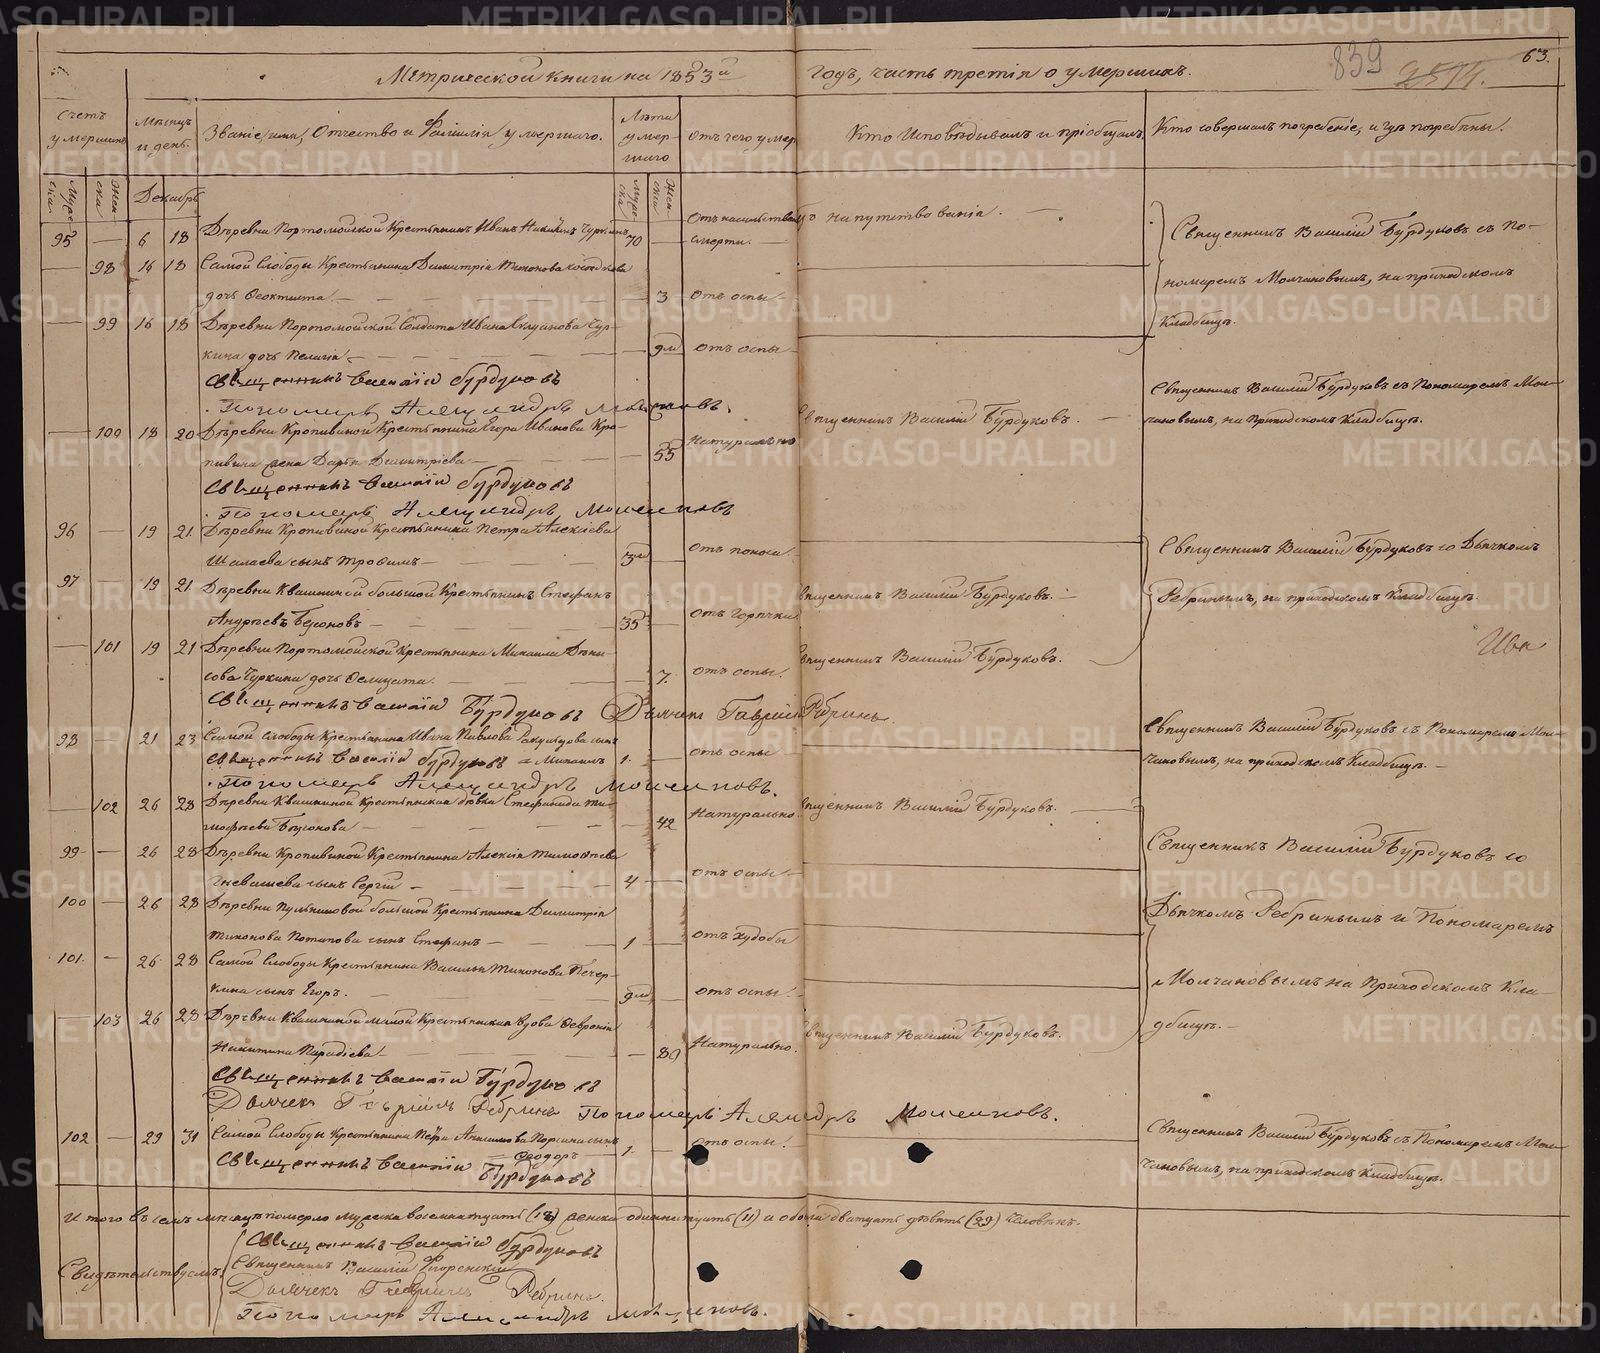 839
63.
Метрической книги на 1853й годъ, часть третія о умершихъ.
Счетъ умершихъ
Мѣсяцъ и день.
Званіе, имя, Отчество и Фамилія, умершаго.
Лѣта умершаго
Отъ чего умеръ
Кто Исповѣдывалъ и пріобщалъ.
Кто совершалъ погребеніе, и гдѣ погребены.
Муже-ска.
Жен-ска
Декабрь
Муже-ска
Жен-ска
95 — 6 18 Деревни Портомойской Крестьянинъ Иванъ Чуркинъ 70 —
Отъ насильственной смерти. —
напутствованія. —
— 98 16 18 Самой Слободы Крестьянина Димитрія Тихонова
дочь Феоктиста — 3 Отъ оспы —
— 99 16 18 Деревни Портомойской Солдата Ивана Чур-
кина дочь Пелагія — 9 м Отъ оспы —
Священникъ Василій Бурдуковъ съ по-
номаремъ Молчановымъ, на приходскомъ
Кладбищѣ.
Священникъ Василій Бурдуковъ
Пономарь Александръ Молчановъ.
— 100 18 20 Деревни Кропивиной Крестьянина Егора Иванова Кро-
пивина жена Дарья Димитріева — 55 Натурально
Священникъ Василій Бурдуковъ. —
Священникъ Василій Бурдуковъ съ Пономаремъ Мол-
чановымъ, на Приходскомъ Кладбищѣ.
Священникъ Василій Бурдуковъ
Пономарь Александръ Молчановъ
96 — 19 21. Деревни Кропивиной Крестьянина Петра Алексіева
Шалаева сынъ Трофимъ — 3 м Отъ поноса.
97 — 19 21 Деревни Квашниной большой Крестьянинъ Стефанъ
Андреевъ — 35 Отъ Горячки
Священникъ Василій Бурдуковъ. —
— 101 19 21 Деревни Портомойской Крестьянина Михаила Дени-
сова Чуркина дочь Фелицата. — 7. Отъ оспы.
Священникъ Василій Бурдуковъ.
Священникъ Василій Бурдуковъ со Дьячкомъ
Ребринымъ, на приходскомъ Кладбищѣ.
Ива
Священникъ Василій Бурдуковъ Дьячекъ Гавріилъ Ребринъ
98 — 21 23 Самой слободы Крестьянина Ивана Павлова сынъ
Михаилъ 1. — Отъ оспы
Священникъ Василій Бурдуковъ съ Пономаремъ Мол-
чановымъ, на приходскомъ Кладбищѣ. —
Священникъ Василій Бурдуковъ
Пономарь Александръ Молчановъ.
— 102 26 28 Деревни Квашниной крестьянская дѣвка Стефанида Ти-
мофеева — 42 Натурально
Священникъ Василій Бурдуковъ. —
99 — 26 28 Деревни Кропивиной Крестьянина Алексія Тимофеева
Гневашева сынъ Сергій — 4 — отъ оспы —
100 — 26 28 Деревни большой Крестьянина Димитрія
Тихонова Потапова сынъ Стефанъ — 1 — отъ худобы
101. — 26 28 Самой Слободы Крестьянина Василья Тихонова Печер-
кина сынъ Егоръ. — 9 м — отъ оспы —
— 103 26 28 Деревни Квашниной малой Крестьянская вдова Февронія
Никитина — 80 Натурально.
Священникъ Василій Бурдуковъ.
Священникъ Василій Бурдуковъ со
Дьячкомъ Ребринымъ и Пономаремъ
Молчановымъ на Приходскомъ Кла-
дбищѣ. —
Священникъ Василій Бурдуковъ
Дьячекъ Гавріилъ Ребринъ Пономарь Александръ Молчановъ.
102 — 29 31 Самой Слободы Крестьянина Петра сынъ
Феодоръ 1. — Отъ оспы.
Священникъ Василій Бурдуковъ съ Пономаремъ Мол-
чановымъ, на приходскомъ Кладбищѣ.
Священникъ Василій Бурдуковъ
Итого въ семъ мѣсяцѣ померло мужеска восемнатцать (18) женска одиннатцать (11) а обоего дватцать девять (29) человѣкъ.
Свидетельствуемъ:
Священникъ Василій Бурдуковъ
Священникъ Василій Флоренскій
Дьячекъ Гавріилъ Ребринъ.
Пономарь Александръ Молчановъ.
METRIKI.GASO-URAL.RU